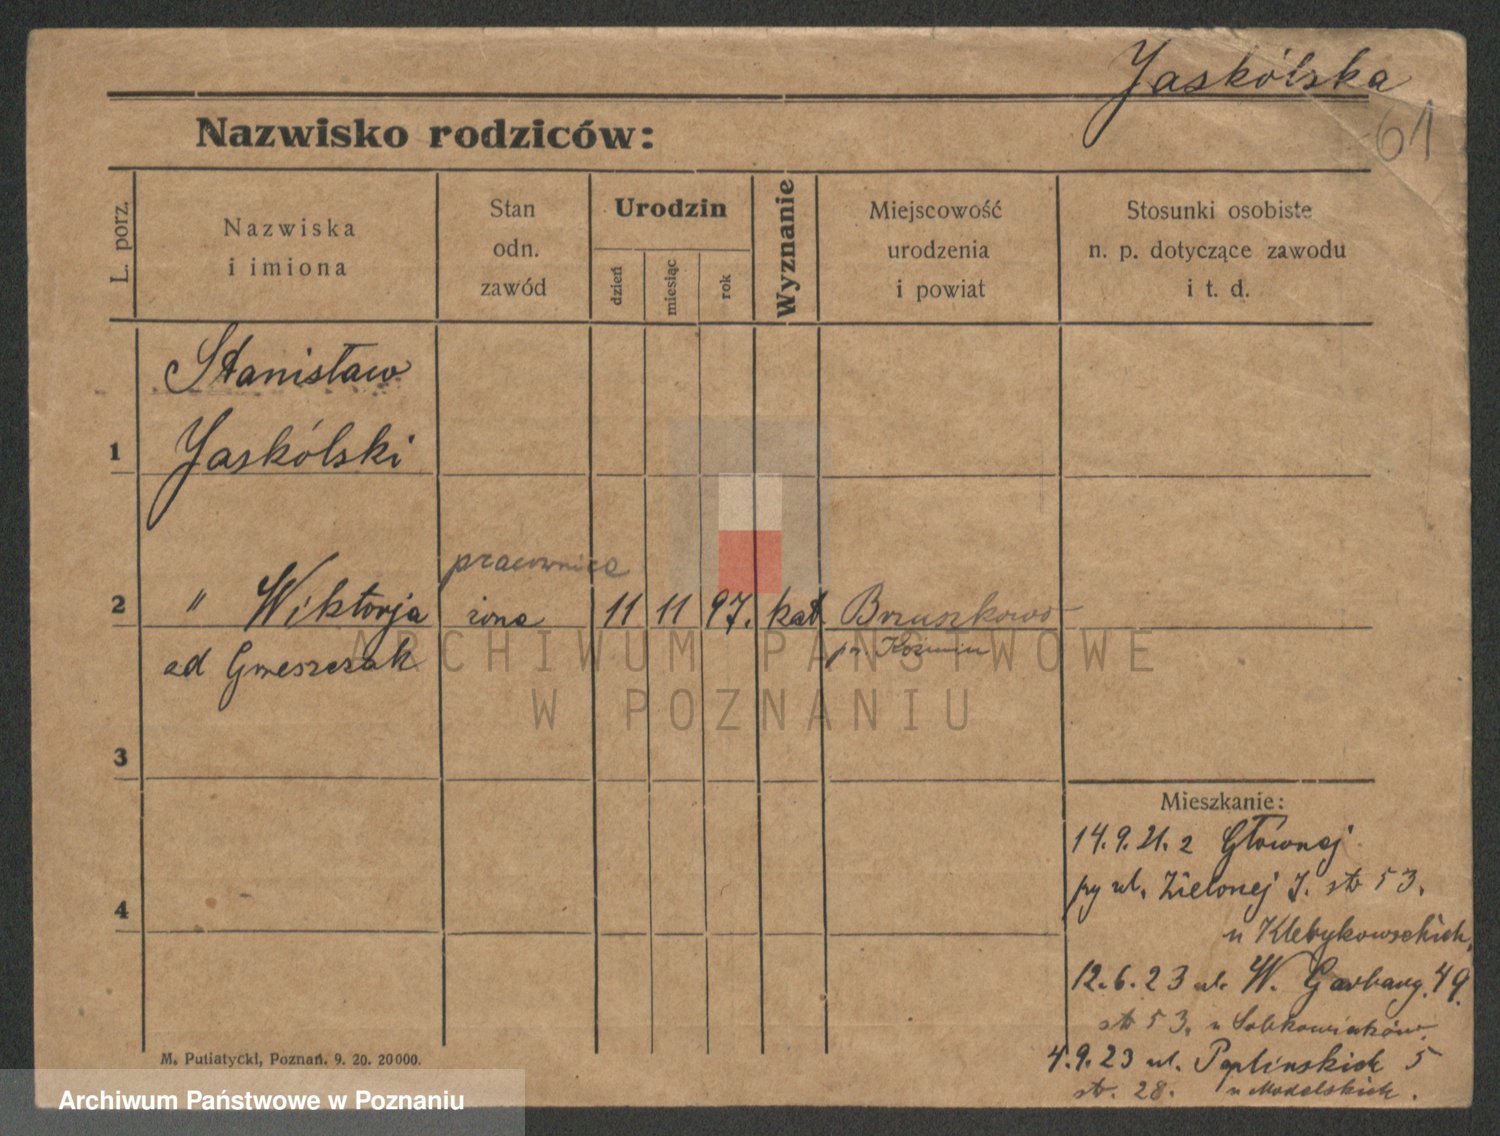 Jaskólska
61
Nazwisko rodziców:
L. porz.
Nazwiska
i imiona
Stan
odn.
zawód
Urodzin
dzień
miesiąc
rok
Wyznanie
Miejscowość
urodzenia
i powiat
Stosunki osobiste
n. p. dotyczące zawodu
i t. d.
Stanisław
1 Jaskólski
pracownica
2 " Wiktorja żona 11 11 97. kat Bruszkowo
od Gweszczak
3
4
Mieszkanie:
14.9.21. z Głównej
ul. Zielonej 7. str 53.
u Klebykowskich,
12.6.23 ul. W. Garbary. 49.
str 53. u Sobkowiaków
4.9.23 ul. Peplińskich 5
str. 28. u Modelskich.
M. Putiatycki, Poznań. 9. 20. 20000.
ARCHIWUM PAŃSTWOWE
W POZNANIU
Archiwum Państwowe w Poznaniu